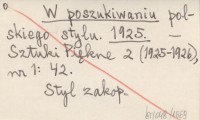 W poszukiwaniu pol-
skiego stylu. 1925. —
Sztuki Piękne 2 (1925-1926),
nr 1: 42.
Styl zakop.